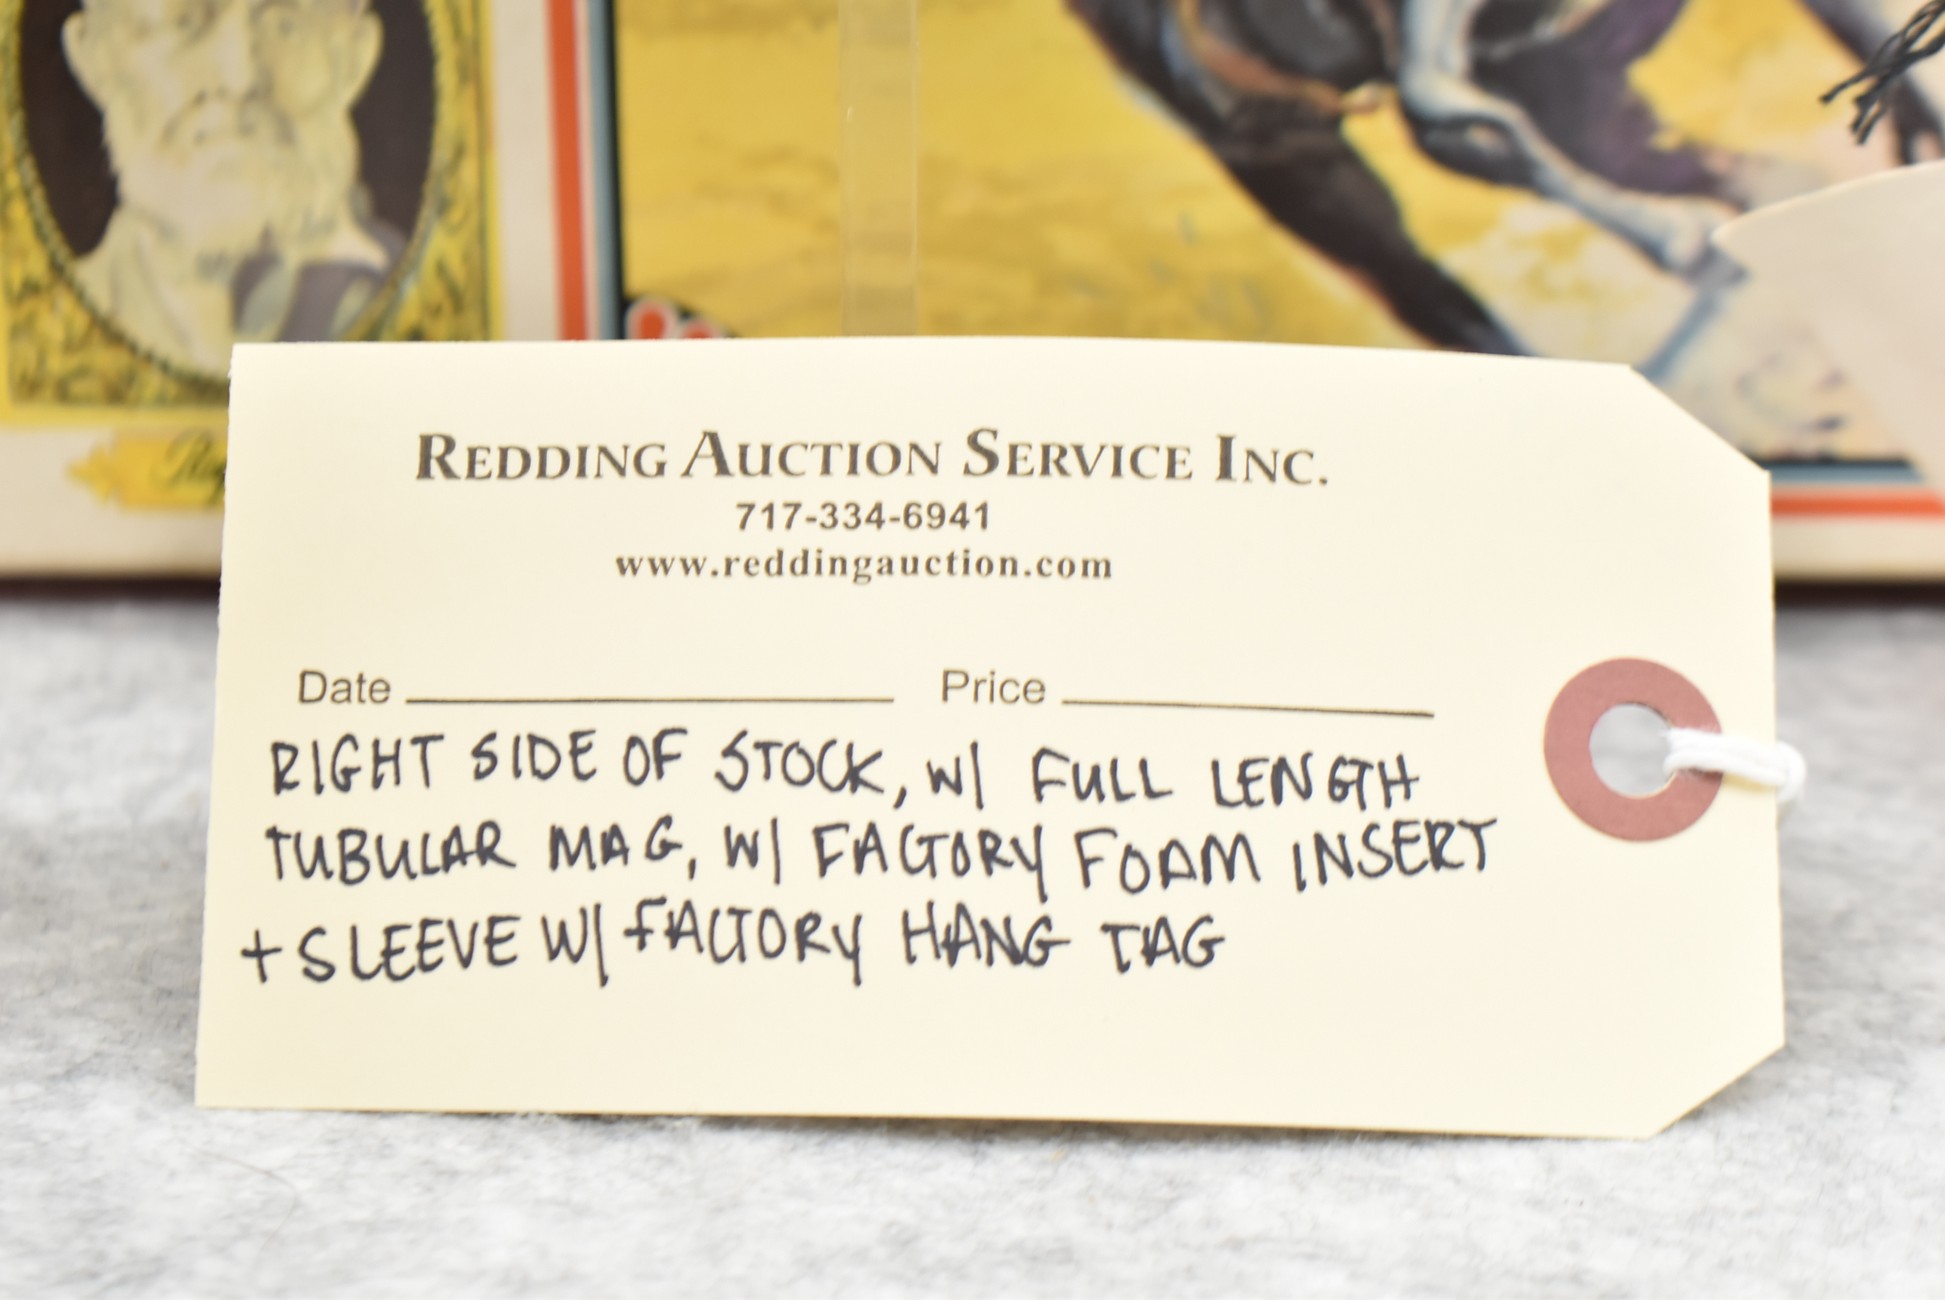 REDDING AUCTION SERVICE INC.
717-334-6941
www.reddingauction.com
Date Price
RIGHT SIDE OF STOCK, W/ FULL LENGTH
TUBULAR MAG, W/ FACTORY FOAM INSERT
+ SLEEVE W/ FACTORY HANG TAG